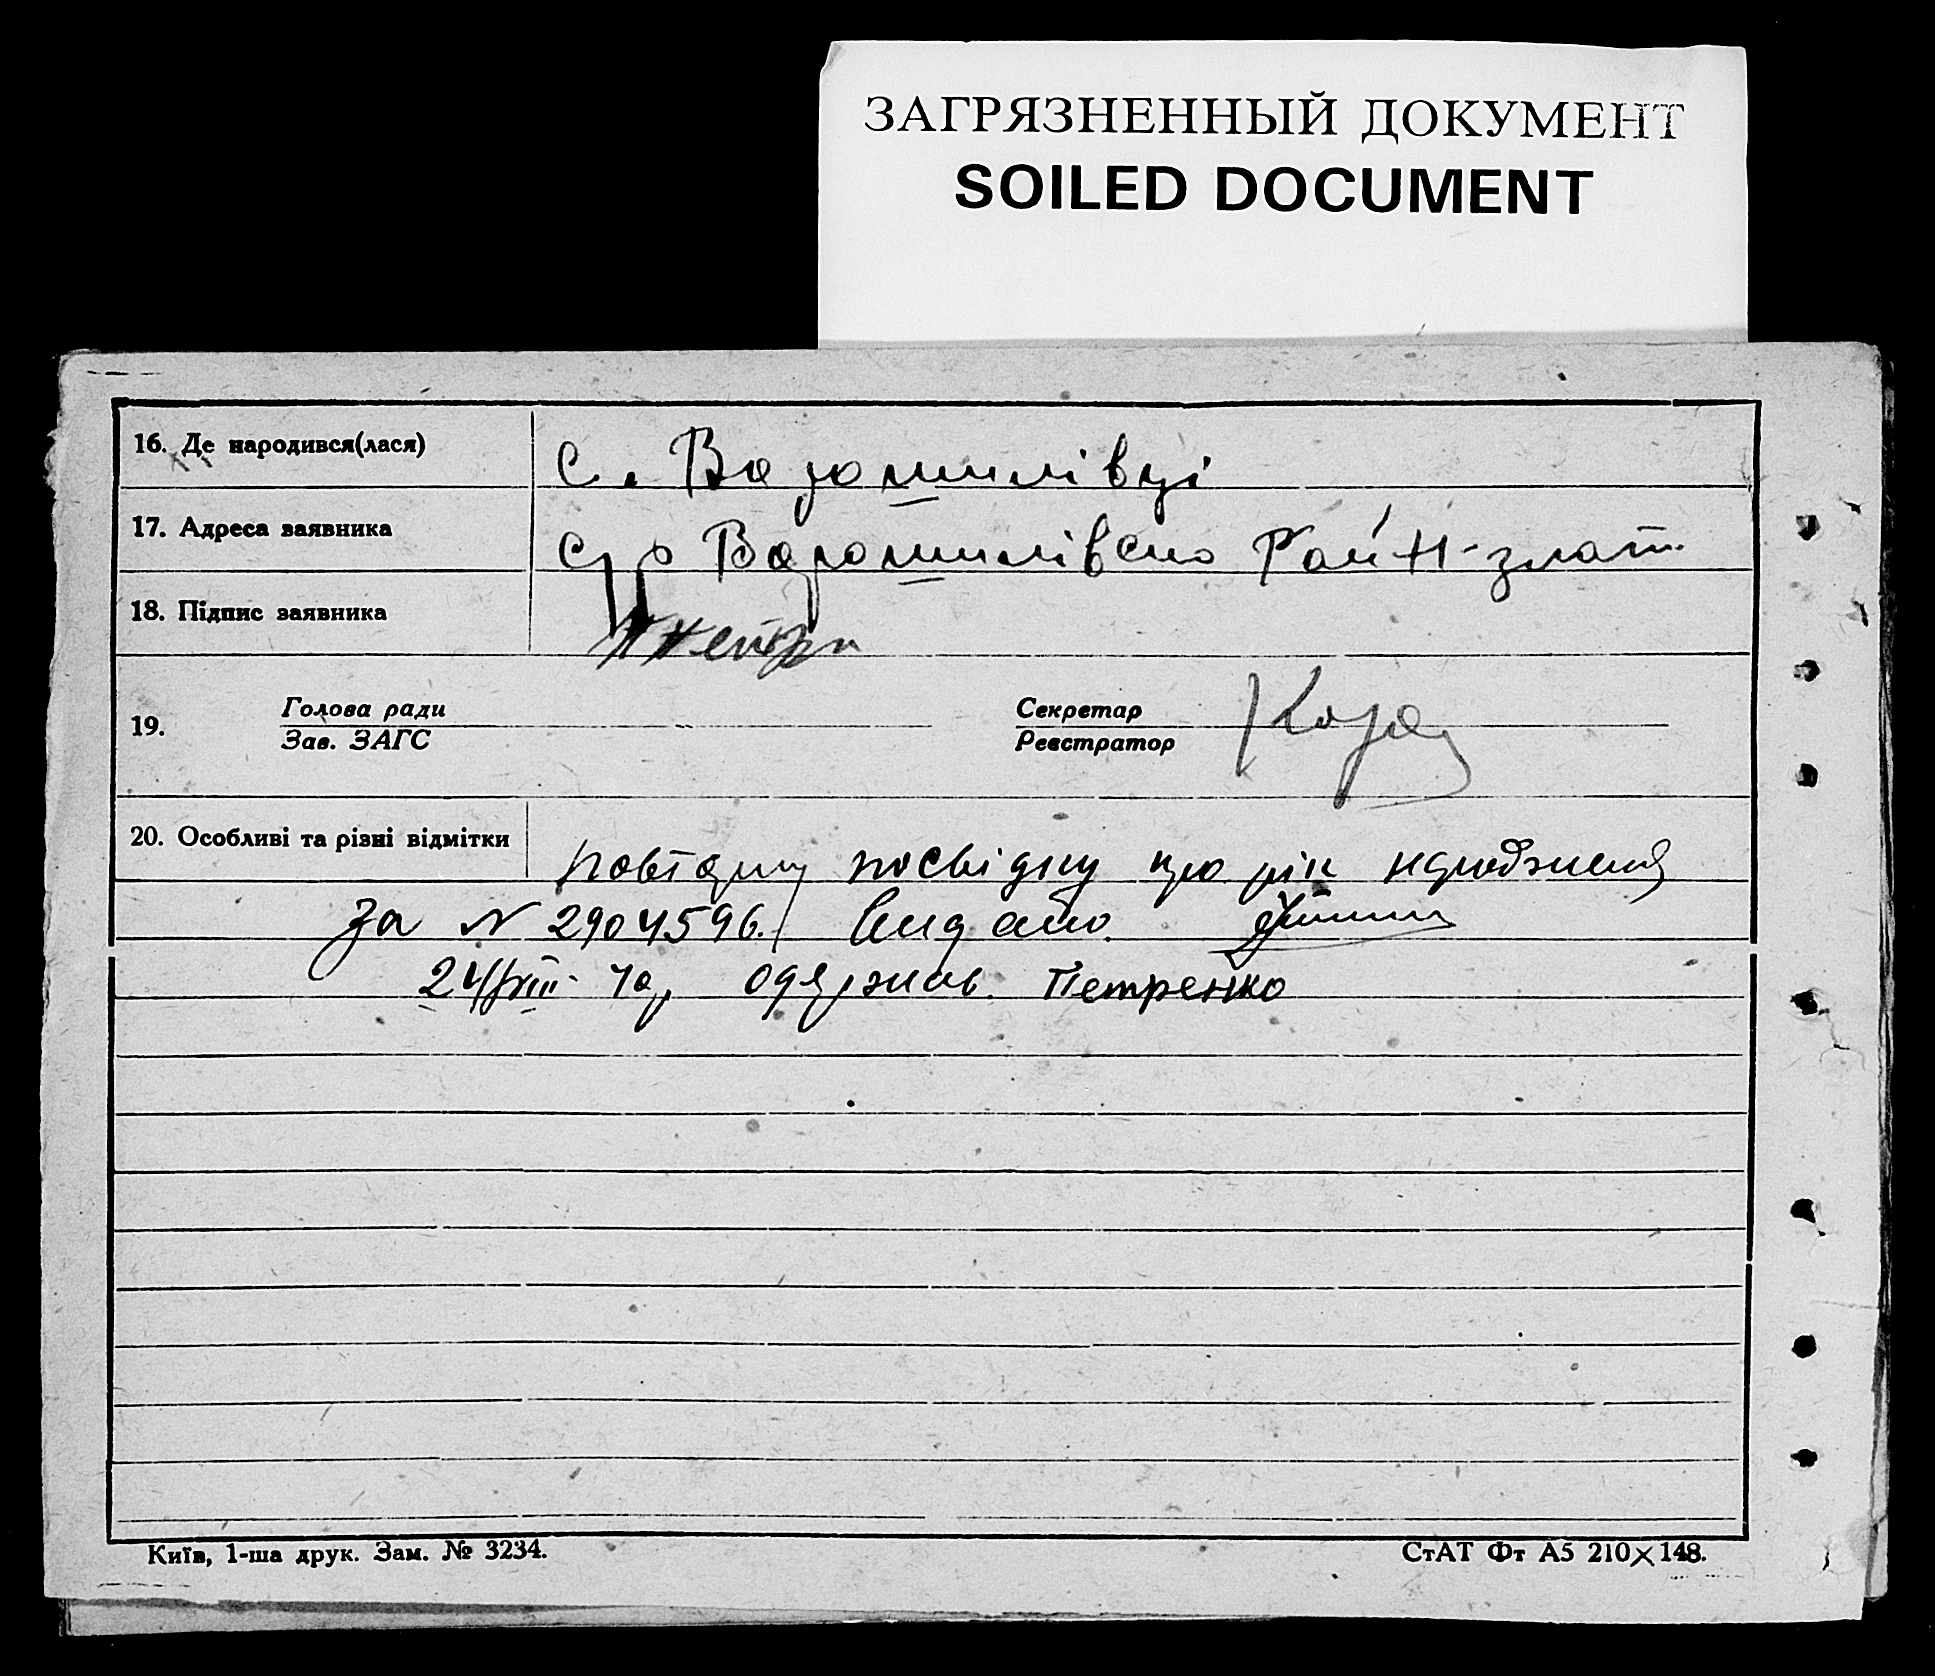 ЗАГРЯЗНЕННЫЙ ДОКУМЕНТ
SOILED DOCUMENT
16. Де народився(лася) с. Ворошилівці
17. Адреса заявника с/р Ворошилівсько Рай Н-злат.
18. Підпис заявника
19. Голова ради Секретар
Зав. ЗАГС Реєстратор
20. Особливі та різні відмітки повторну посвідку про рік народження
За № 2904596. Видано
24/VIII- 40р одержав. Петренко
Київ, 1-ша друк. Зам. № 3234. СтАТ Фт А5 210×148.